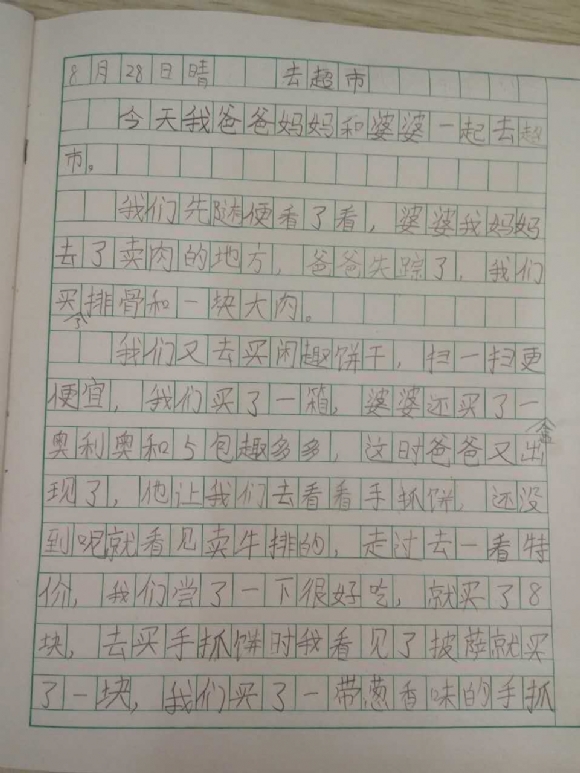 8月28日晴 去超市
今天我爸爸妈妈和婆婆一起去超
市。
我们先随便看了看，婆婆我妈妈
去了卖肉的地方，爸爸失踪了，我们
买了排骨和一块大肉。
我们又去买闲趣饼干，扫一扫更
便宜，我们买了一箱，婆婆还买了一盒
奥利奥和5包趣多多，这时爸爸又出
现了，他让我们去看看手抓饼，还没
到呢就看见卖牛排的，走过去一看特
价，我们尝了一下很好吃，就买了8
块，去买手抓饼时我看见了披萨就买
了一块，我们买了一带葱香味的手抓